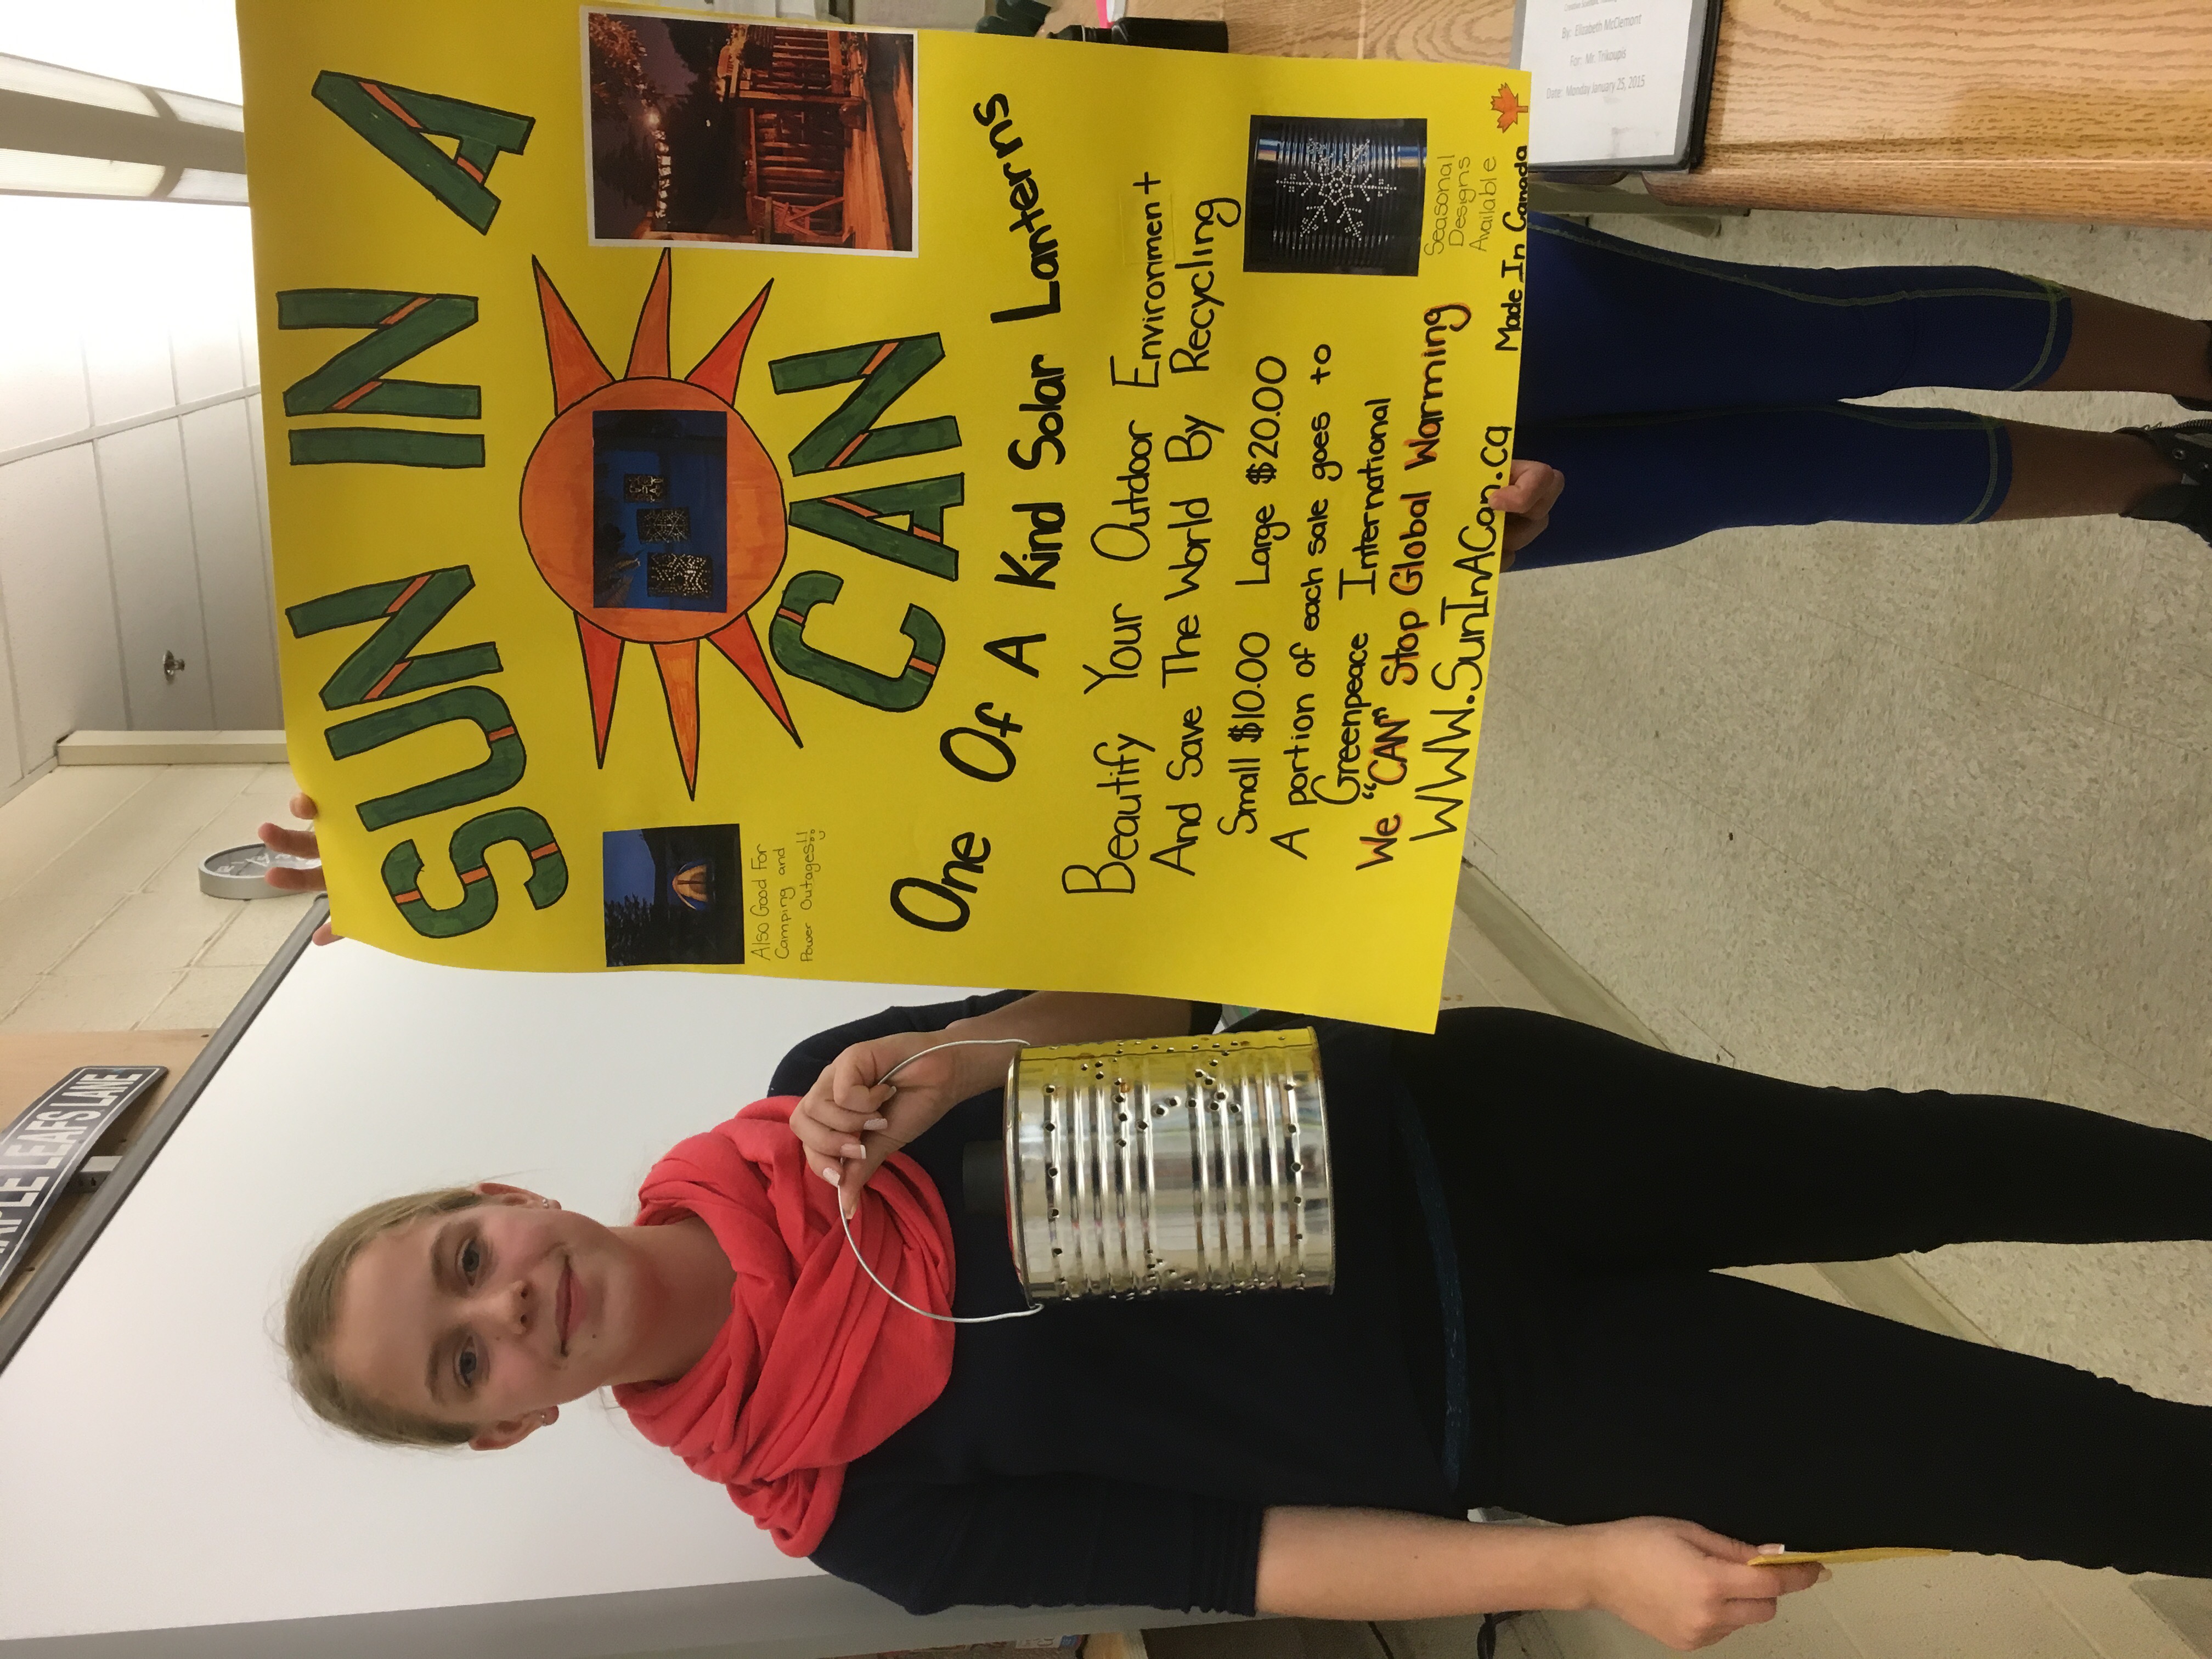 SUN IN A
CAN
Also Good For
Camping and
Power Outages!!
One Of A Kind Solar Lanterns
Beautify Your Outdoor Environment
And Save The World By Recycling
Small $10.00 Large $20.00
A portion of each sale goes to
Greenpeace International
We "CAN" Stop Global Warming
WWW.SunInACan.ca
Seasonal
Designs
Available
Made In Canada
By: Elizabeth McClemont
For: Mr. Trikoupis
Date: Monday January 25, 2015
LEAFS LANE